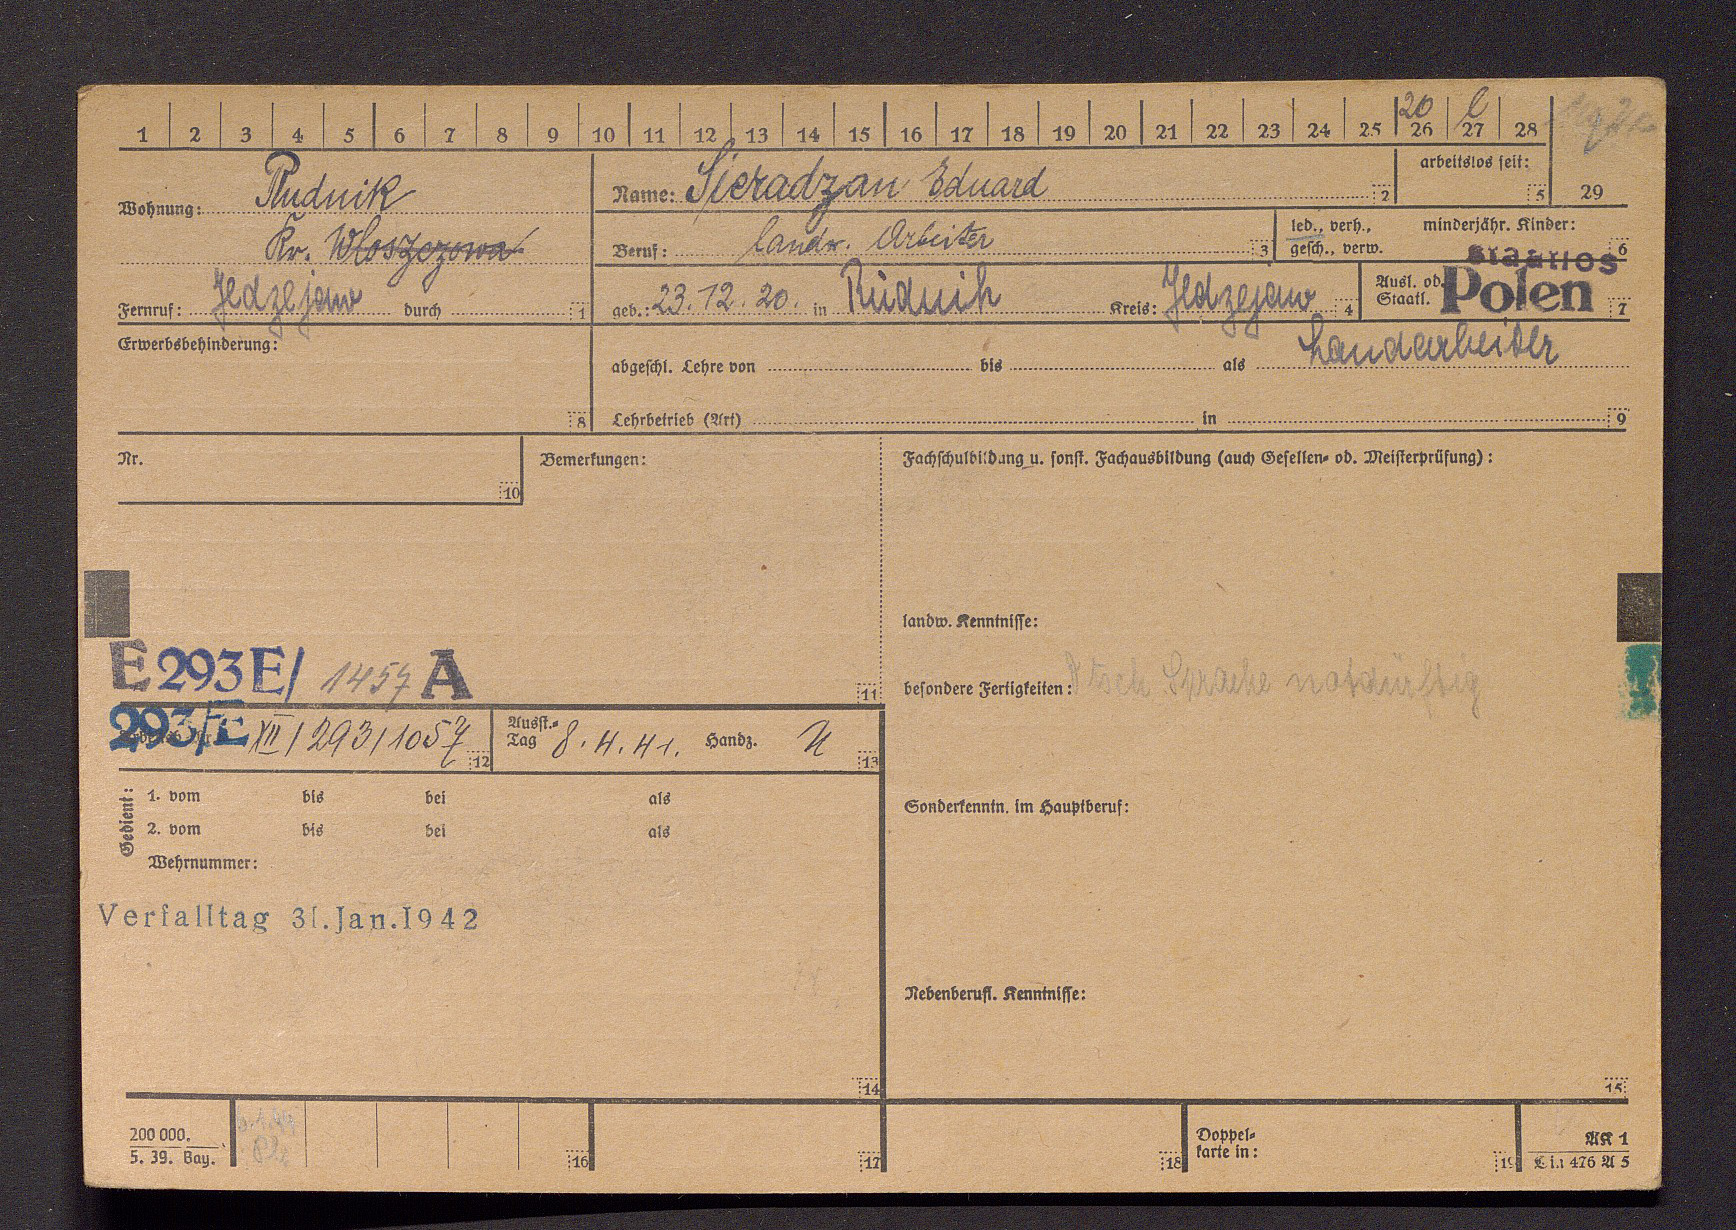 20 l
1 2 3 4 5 6 7 8 9 10 11 12 13 14 15 16 17 18 19 20 21 22 23 24 25 26 27 28
arbeitslos seit:
5 29
Wohnung: Rudnik
Kr. Wloszczowa
Name: Sieradzan Eduard 2
Beruf: landw. Arbeiter 3
led., verh.,
gesch., verw.
minderjähr. Kinder:
6
Fernruf: Jedzejow durch 1
geb.: 23.12.20. in Rudnik Kreis: Jedzejow 4
Ausl. od.
Staatl.
staatlos
Polen 7
Erwerbsbehinderung:
8
abgeschl. Lehre von bis als Landarbeiter
Lehrbetrieb (Art) in 9
Nr.
10
Bemerkungen:
Fachschulbildung u. sonst. Fachausbildung (auch Gesellen- od. Meisterprüfung):
landw. Kenntnisse:
E 293 E/ 1457 A
11
besondere Fertigkeiten: Dtsch Sprache notdürftig
293/E XII/293/1057 12
Ausst.-
Tag 8.4.41. Handz. 13
Gedient:
1. vom bis bei als
2. vom bis bei als
Wehrnummer:
Sonderkenntn. im Hauptberuf:
Verfalltag 31.Jan.1942
Nebenberufl. Kenntnisse:
14
15
200 000.
5. 39. Bay.
16
17
18
Doppel-
karte in:
19
AK 1
Lin 476 A 5